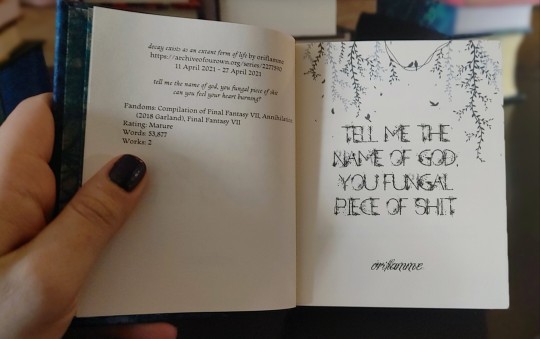 decay exists as an extant form of life by oriflamme
https://archiveofourown.org/series/2271890
11 April 2021 - 27 April 2021
tell me the name of god, you fungal piece of shit
can you feel your heart burning?
Fandoms: Compilation of Final Fantasy VII, Annihilation
(2018 Garland), Final Fantasy VII
Rating: Mature
Words: 53,877
Works: 2
TELL ME THE
NAME OF GOD,
YOU FUNGAL
PIECE OF SHIT
oriflamme